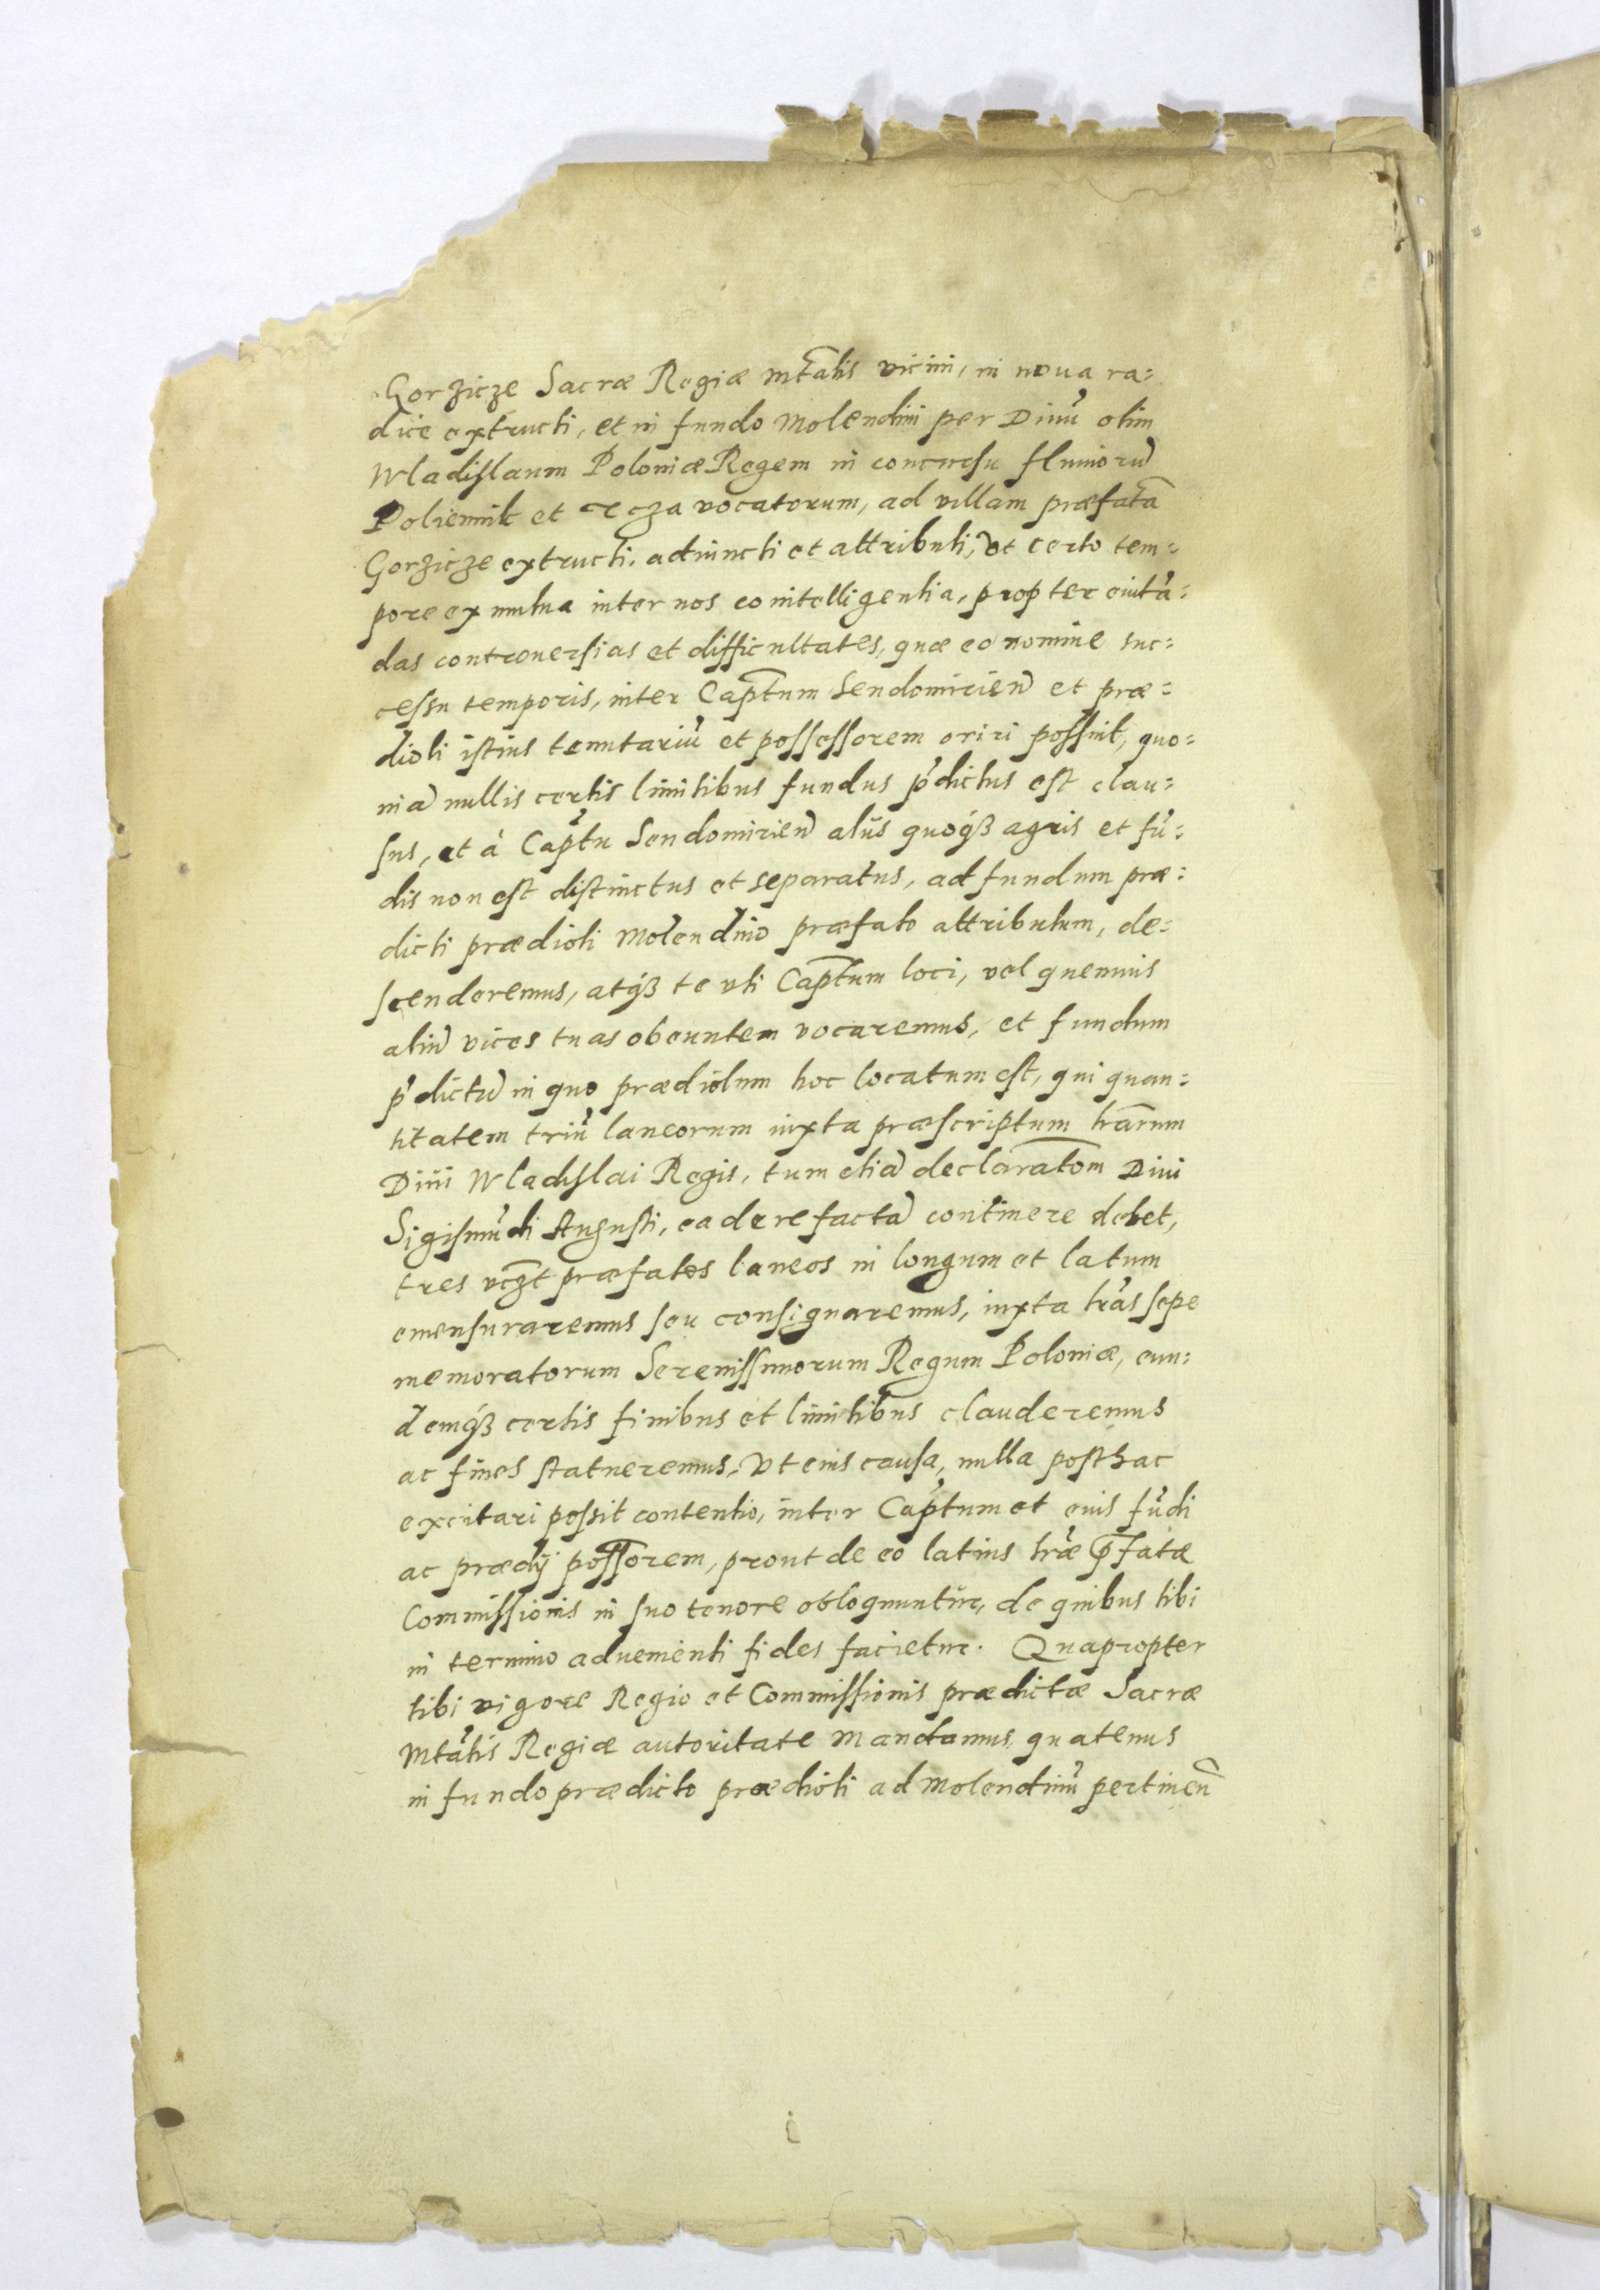 Gorzicze Sacræ Regiæ Mtatis vicini, in noua ra=
dice extructi, et in fundo Molendini per Diuũ olim
Wladislaum Poloniæ Regem in concursu fluuiorũ
Poliennik et Tecza vocatorum, ad villam præfatã
Gorzicze extructi, adiuncti et attributi, vt certo tem=
pore ex mutua inter nos cointelligentia, propter euitã=
das controuersias et difficultates, quæ eo nomine suc=
cessu temporis, inter Captum Sendomirien et præ=
dioli istius tenutariũ et possessorem oriri possint, quo=
niã nullis certis limitibus fundus p̃dictus est clau=
sus, et à Captu Sendomirien alijs quoqȝ agris et fũ=
dis non est distinctus et separatus, ad fundum præ=
dicti prædioli Molendino præfato attributum, de=
scenderemus, atqȝ te vti Captum loci, vel quemuis
aliũ vices tuas obeuntem vocaremus, et fundum
p̃dictũ in quo prædiolum hoc locatum est, qui quan=
titatem triũ laneorum iuxta præscriptum lrarum
Diui Wladislai Regis, tum etiã declaratom Diui
Sigismũdi Augusti, ea de re factã continere debet,
tres vczt præfatos laneos in longum et latum
emensuraremus seu consignaremus, iuxta lras sepe
memoratorum Serenissimorum Regum Poloniæ, eun=
demqȝ certis finibus et limitibus clauderemus
ac fines statueremus, vt eius causa, nulla posthac
excitari possit contentio, inter Captum et eius fũdi
ac prædij possorem, prout de eo latius lræ p̃fatæ
Commissionis in suo tenore obloquuntur, de quibus tibi
in termino aduenienti fides facietur. Quapropter
tibi vigore Regio et Commissionis prædictæ Sacræ
Mtatis Regiæ autoritate Mandamus quatenus
in fundo prædicto prædioli ad Molendinũ pertinen